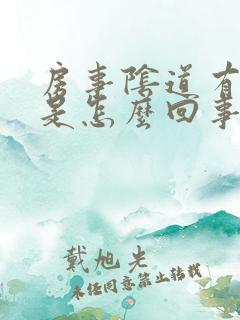 房事陰道有
是怎麼回事
戴旭光
未经同意禁止转载